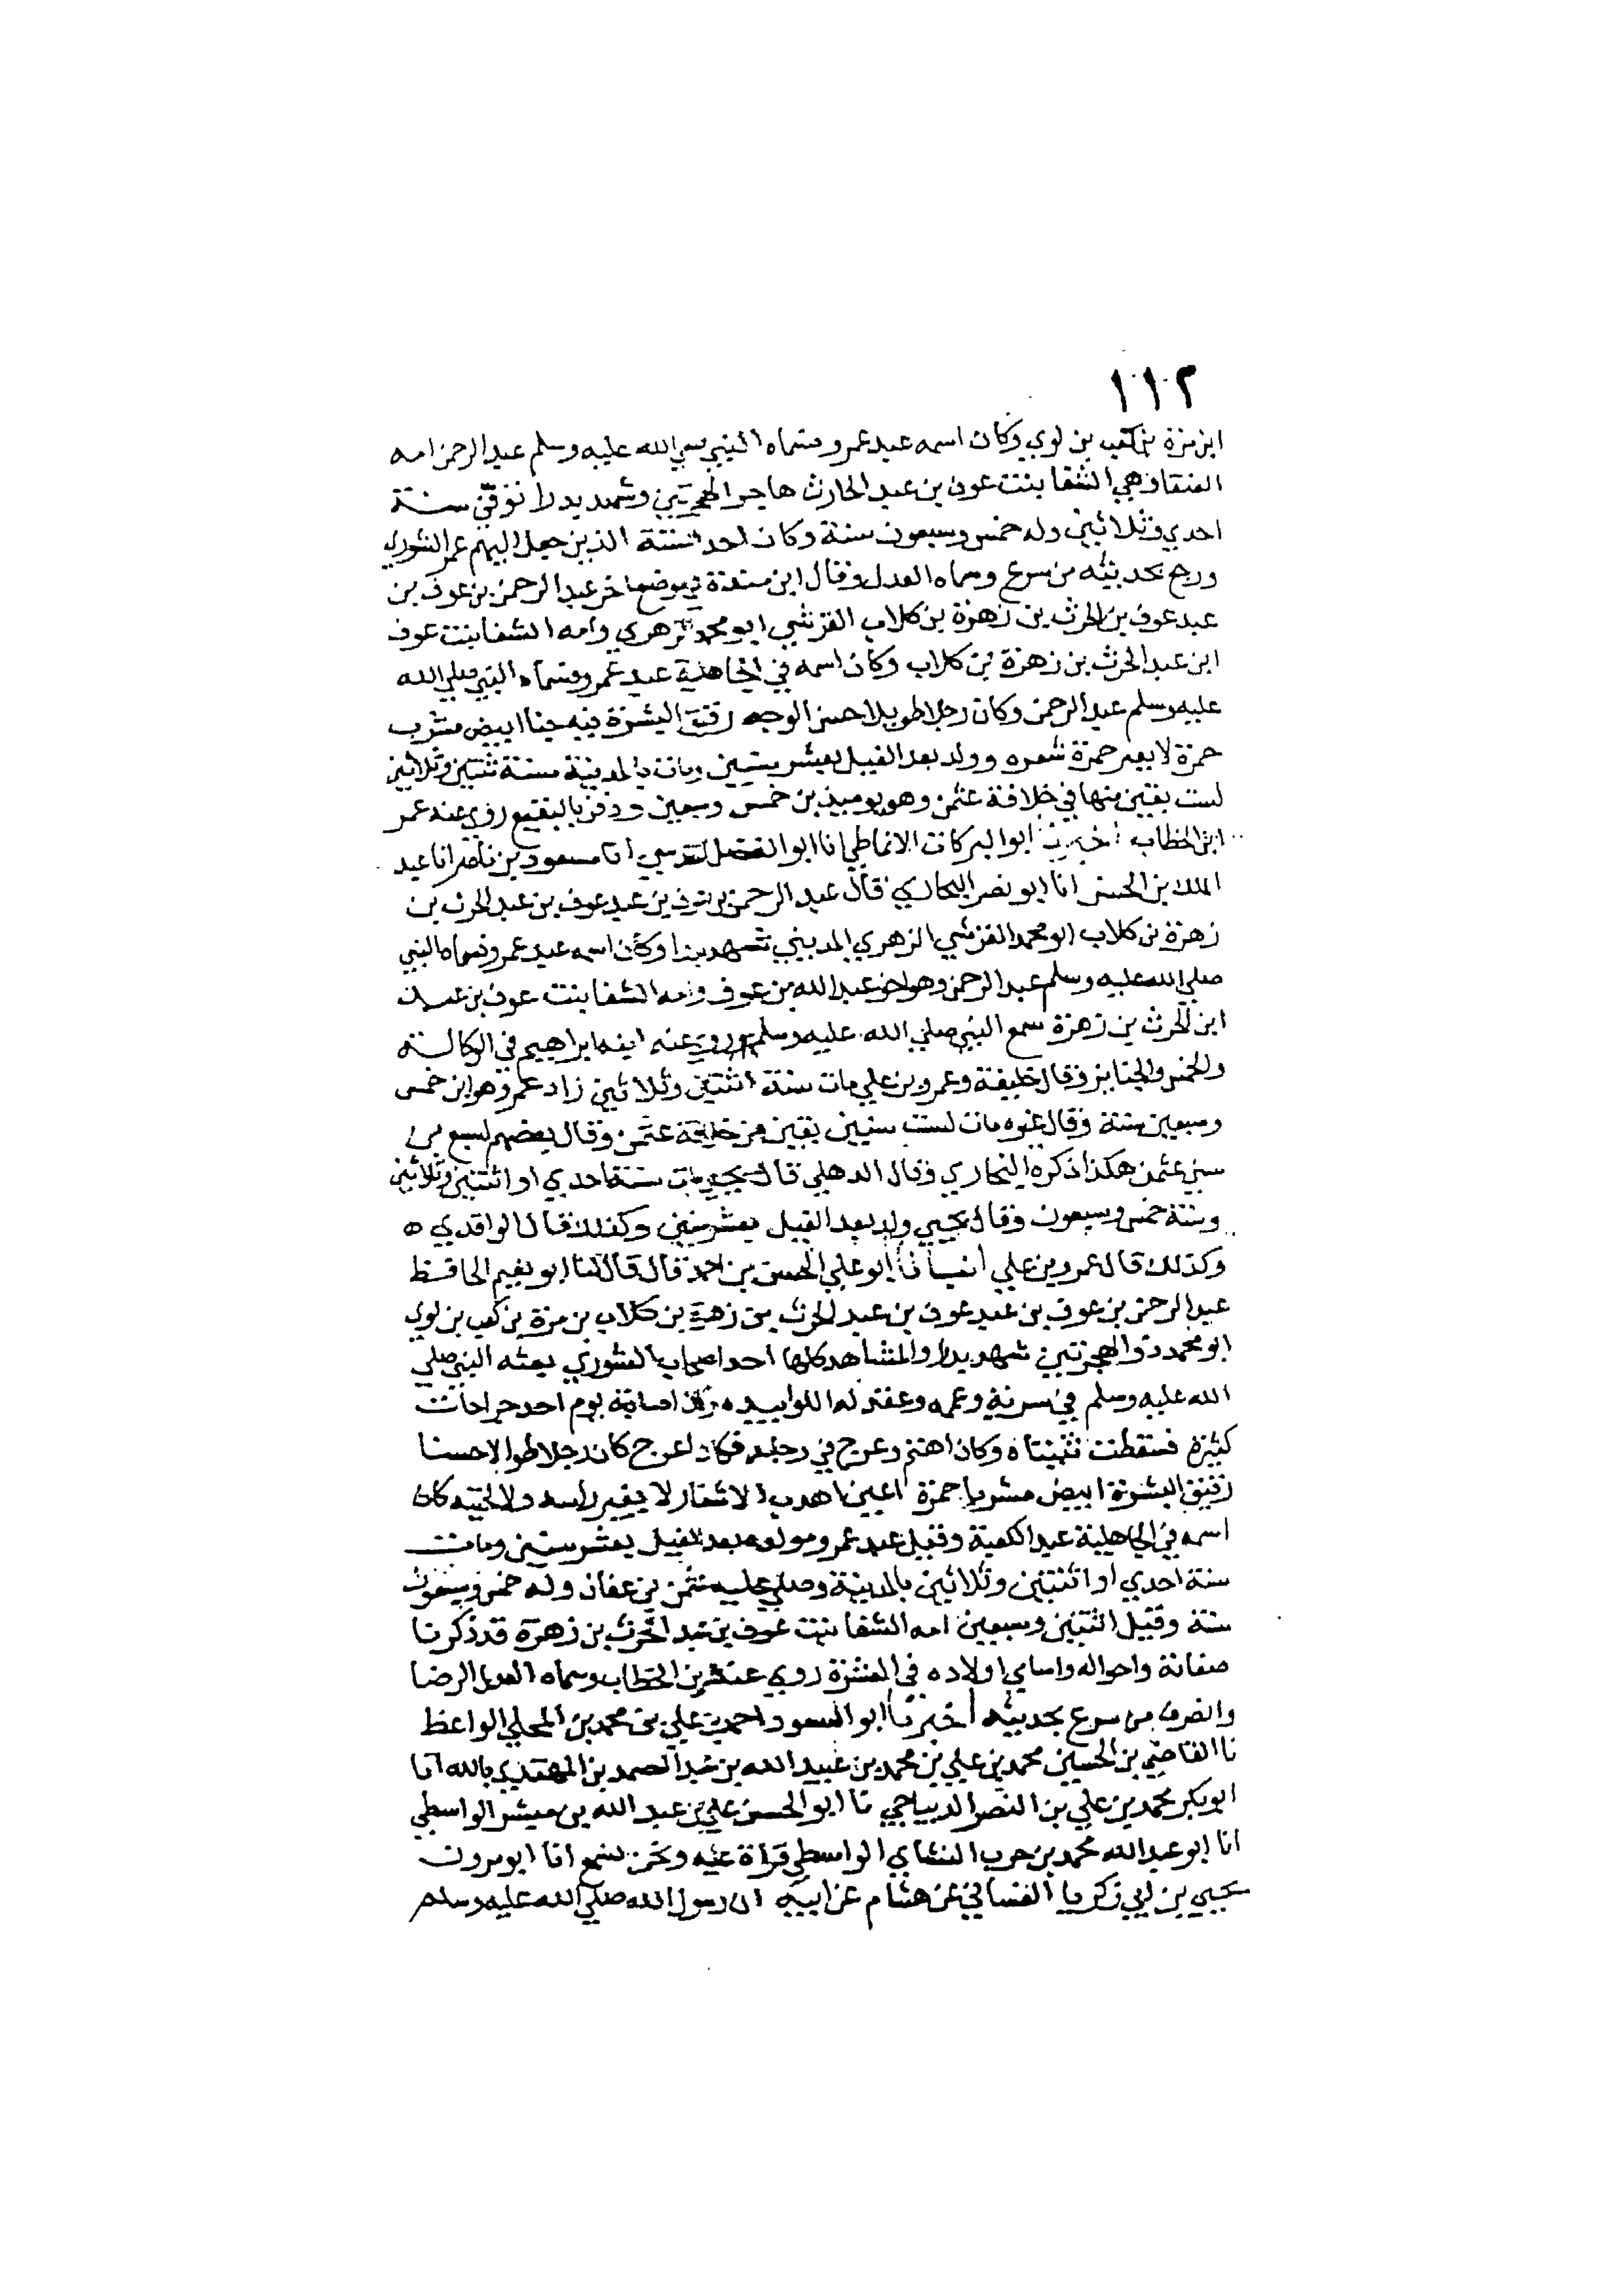 ١١٢
ابن مرة بن كعب بن لوي وكان اسمه عبد عمرو فسماه النبي صلي الله عليه وسلم عبد الرحمن امه
العنقا وهي الشفا بنت عوف بن عبد الحارث هاجر الهجرتين وشهد بدرا توفي سنة
احدي وثلاثين وله خمس وسبعون سنة وكان احد الستة الذين جعل اليهم عمر الشوري
ورجع بحديثه من سرع وسماه العدل وقال ابن مندة في موضع اخر عبد الرحمن بن عوف بن
عبد عوف بن الحرث بن زهرة بن كلاب القرشي ابو محمد الزهري وامه الشفا بنت عوف
ابن عبد الحرث بن زهرة بن كلاب وكان اسمه في الجاهلية عبد عمرو فسماه النبي صلي الله
عليه وسلم عبد الرحمن وكان رجلا طويلا حسن الوجه رقيق البشرة فيه جنا ابيض مشرب
حمرة لا يغير شعره وولد بعد الفيل بعشر سنين ومات بالمدينة سنة ثنتين وثلاثين
لست بقين منها في خلافة عثمن وهو يوميذ بن خمس وسبعين ودفن بالبقيع روي عنه عمر
ابن الخطاب اخبرنا ابو البركات الانماطي انا ابو الفضل المقدسي انا مسعود بن ناصر انا عبد
الملك بن الحسن انا ابو نصر البخاري قال عبد الرحمن بن عوف بن عبد عوف بن عبد الحرث بن
زهرة بن كلاب ابو محمد القرشي الزهري المديني شهد بدرا وكان اسمه عبد عمرو فسماه النبي
صلي الله عليه وسلم عبد الرحمن وهو اخو عبد الله بن عوف وامه الشفا بنت عوف بن عبد
ابن الحرث بن زهرة سمع النبي صلي الله عليه وسلم وروي عنه ابنه ابراهيم في الوكالة
والخمس والجنايز وقال خليفة وعمرو بن علي مات سنة اثنتين وثلاثين زاد عمرو وهو ابن خمس
وسبعين سنة وقال غيره مات لست سنين بقين من خلافة عثمن وقال بعضهم لسبع من
سني عثمن هكذا ذكره البخاري وقال الذهلي قال يحيي مات سنة احدي او اثنتين وثلاثين
وسنة خمس وسبعون وقال يحيي ولد بعد الفيل بعشر سنين وكذلك قال الواقدي ه
وكذلك قال عمرو بن علي انبانا ابو علي الحسن بن احمد قال قال لنا ابو نعيم الحافظ
عبد الرحمن بن عوف بن عبد عوف بن عبد الحرث بن زهرة بن كلاب بن مرة بن كعب بن لوي
ابو محمد ذو الهجرتين شهد بدرا والمشاهد كلها احد اصحاب الشوري بعثه النبي صلي
الله عليه وسلم في سرية وعممه وعقد له اللوا بيده وكان اصابة يوم احد جراحات
كثيرة فسقطت ثنيتاه وكان اهتم وعرج في رجله فكان اعرج كان رجلا طوالا حسنا
رقيق البشرة ابيض مشربا حمرة اعين اهدب الاشفار لا يغير راسه ولا لحيته كان
اسمه في الجاهلية عبد الكعبة وقيل عبد عمرو ومولده بعد الفيل بعشر سنين ومات
سنة احدي او اثنتين وثلاثين بالمدينة وصلي عليه عثمن بن عفان وله خمس وسبعون
سنة وقيل اثنتين وسبعين امه الشفا بنت عوف بن عبد الحرث بن زهرة قد ذكرنا
صفاته واحواله واسامي اولاده في العشرة روي عنه عمر بن الخطاب وسماه العدل الرضا
وانصرف من سرع بحديثه اخبرنا ابو السعود احمد بن علي بن محمد بن المجلي الواعظ
نا القاضي بن الحسين محمد بن علي بن محمد بن عبيد الله بن عبد الصمد بن المهتدي بالله انا
ابو بكر محمد بن علي بن النصر الديباجي نا ابو الحسن علي بن عبد الله بن مبشر الواسطي
انا ابو عبد الله محمد بن حرب النشاي الواسطي قراة عليه ونحن نسمع انا ابو مروان
يحيي بن ابي زكريا الغساني عن هشام عن ابيه ان رسول الله صلي الله عليه وسلم